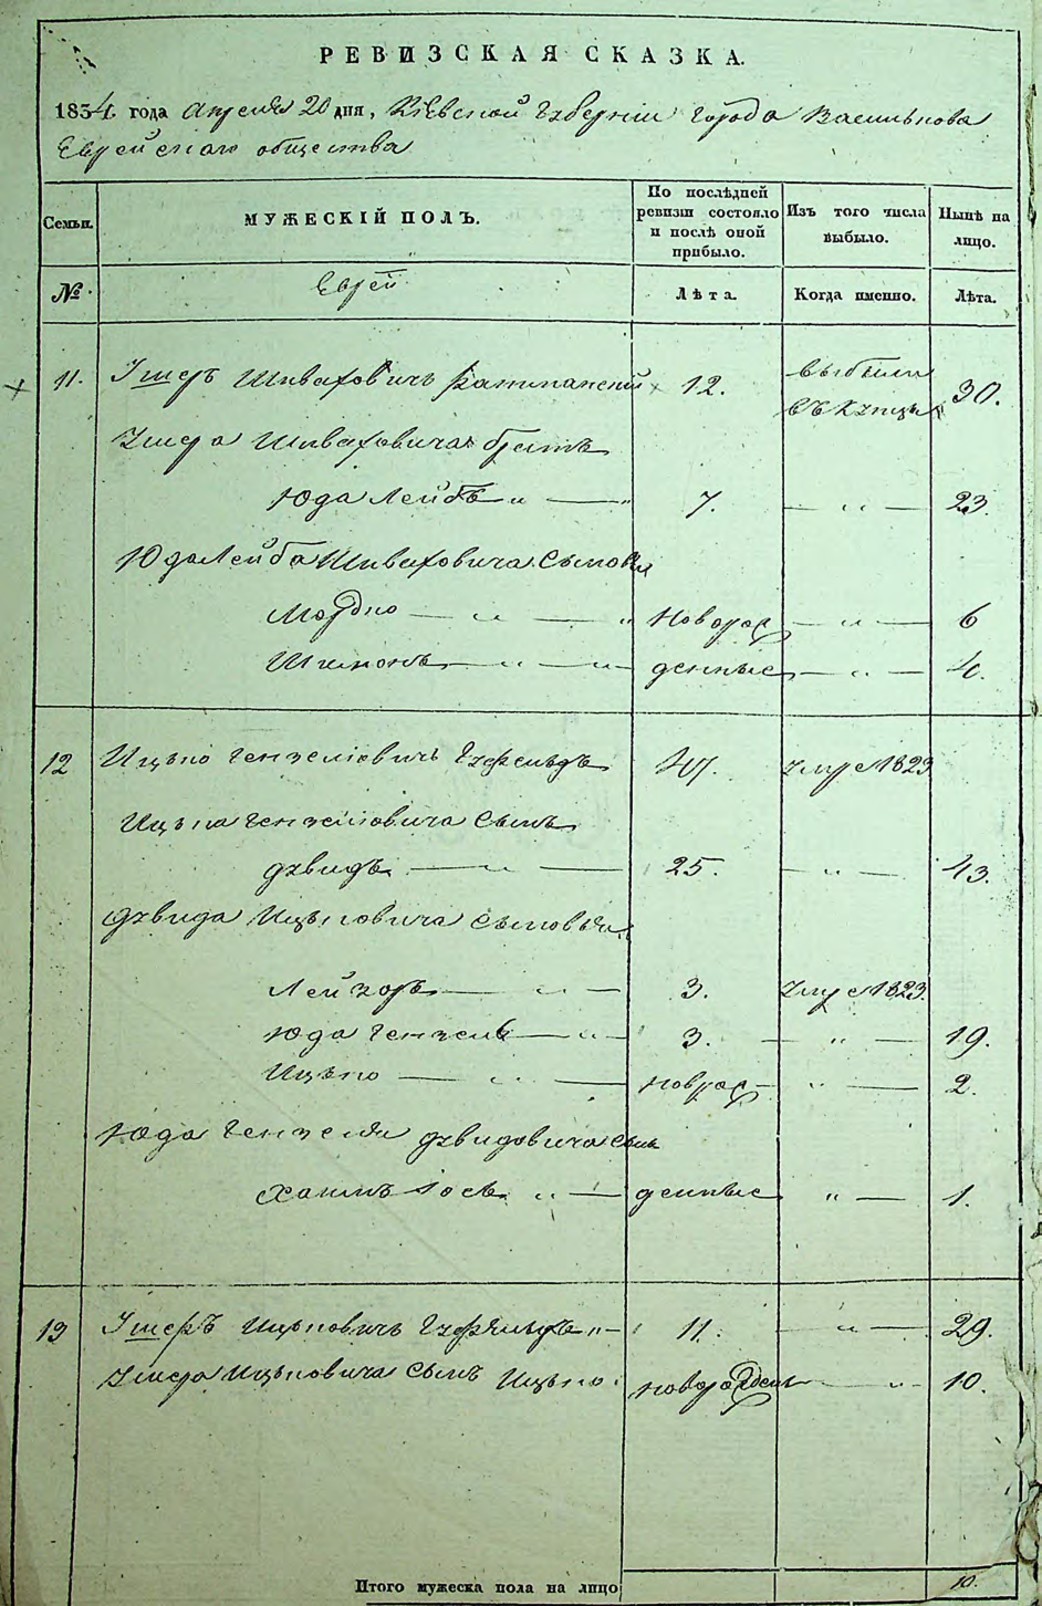 РЕВИЗСКАЯ СКАЗКА.
1834 года Апреля 20 дня, Кіевской Губерніи Города Василькова
Еврейскаго общества
Семьи. МУЖЕСКІЙ ПОЛЪ. По послѣдней ревизіи состояло и послѣ оной прибыло. Изъ того числа выбыло. Нынѣ на лицо.
№ Еврей Лѣта. Когда именно. Лѣта.
11. Ушеръ Шивахович 12. выбыли въ купцы 30.
Ушера Шиваховича братъ
Юда Лейбъ 7. 23.
Юда Лейба Шиваховича Сыновья
Мордко Новорож 6
Шимонъ денные 4.
12 Ицько Гензелiовичъ 47. умре 1823
Ицька Гензелiовича Сынъ
Дувидъ 25. 43.
Дувида Ицьковича Сыновья
Лейзоръ 3. умре 1823.
Юда Гензель 3. 19.
Ицько новорож 2.
Юда Гензеля Дувидовича Сынъ
Хаимъ Іось денные 1.
13 Ушеръ Ицьковичъ 11. 29.
Ушера Ицьковича Сынъ Ицько новорожден 10.
Итого мужеска пола на лицо 10.